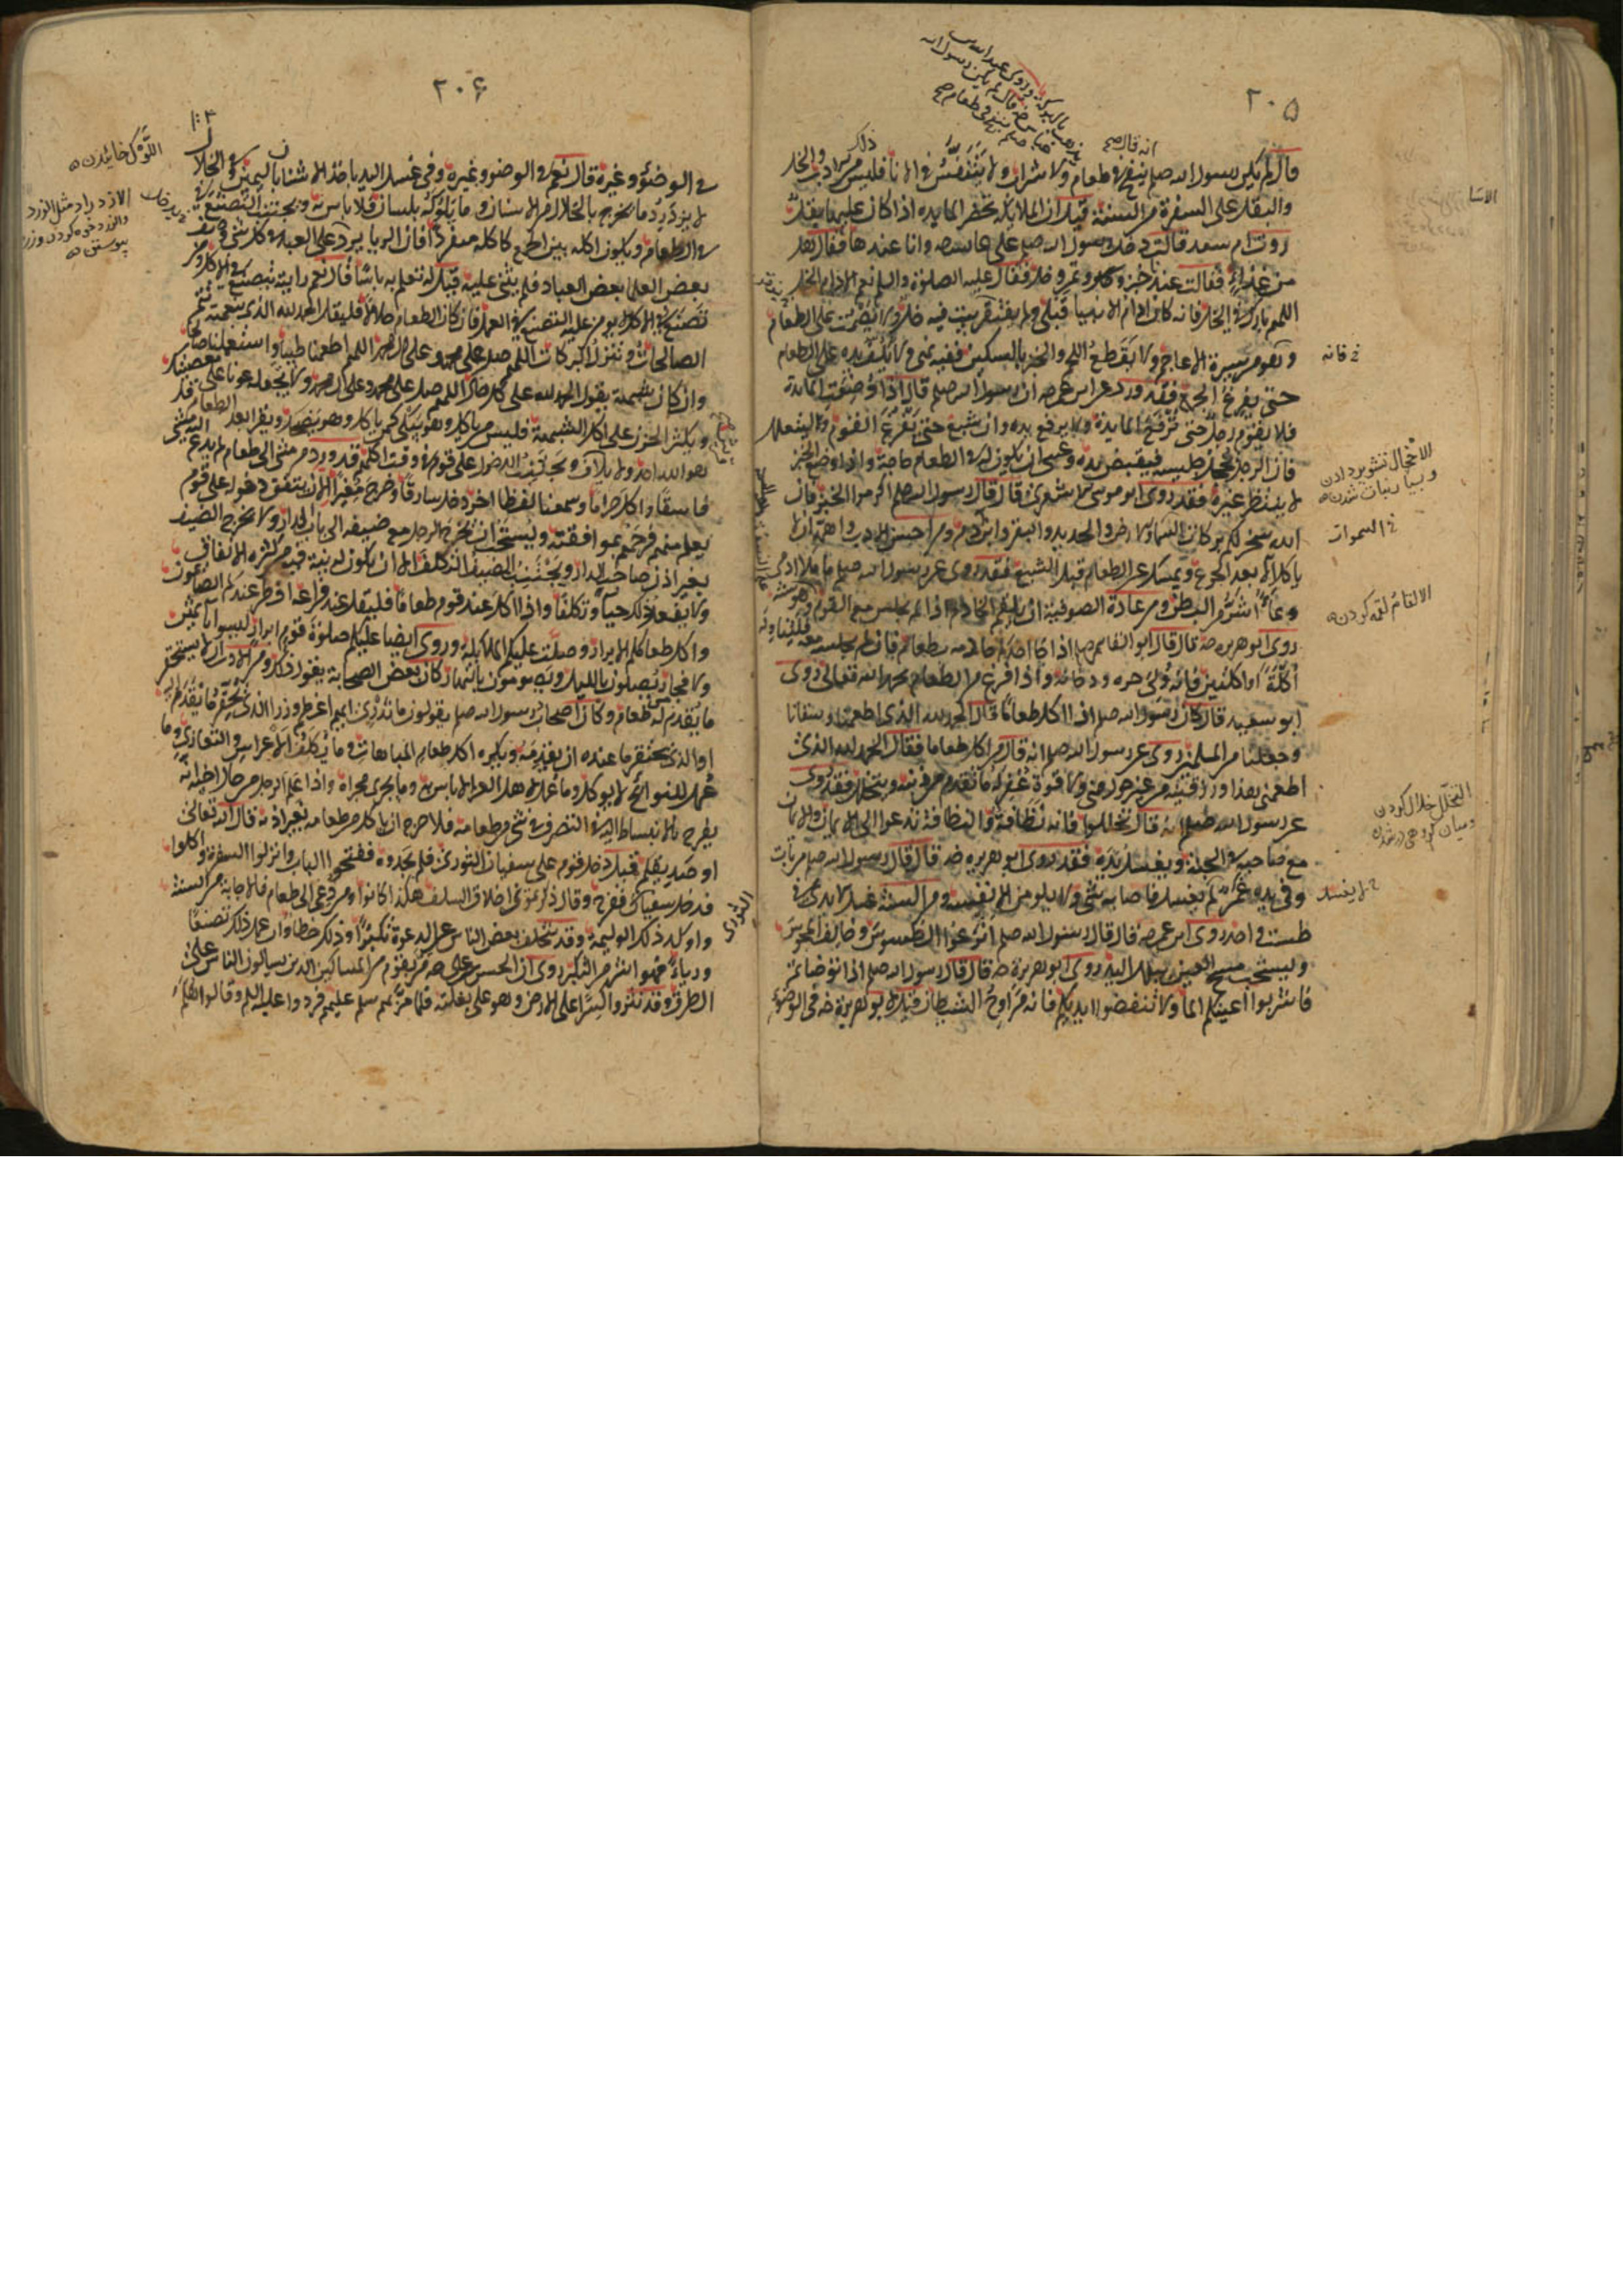 ٢٠٥
انه قال
ذكر
قال لم يكن رسول الله صلم ينفخ في طعام ولا شراب ولا يتنفس في الاناء فليس من الادب ذلك والخل
والبقل على السفرة من السنة قيل ان الملايكة تحضر المايدة اذا كان عليها بقل
روت ام سعد قالت دخل رسول الله صلم على عايشه وانا عندها فقال هل
من غداء فقالت عندنا خبز وتمر وخل فقال عليه الصلوة والسلم نعم الادام الخل
اللهم بارك في الخل فانه كان ادام الانبيا قبلي ولم يفتقر بيت فيه خل ولا يصمت على الطعام
فهو من سيرة الاعاجم ولا يقطع اللحم والخبز بالسكين ففيه نهي ولا يكف يده عن الطعام
حتى يفرغ الجمع فقد ورد عن ابن عمر ان رسول الله صلم قال اذا وضعت المايدة
فلا يقوم رجل حتى ترفع المايدة ولا يرفع يده وان شبع حتى يفرغ القوم وليتعلل
فان الرجل يخجل جليسه فيقبض يده وعسى ان يكون له في الطعام حاجة واذا وضع الخبز
لا ينتظر غيره فقد روى ابو موسى الاشعري قال قال رسول الله صلم اكرموا الخبز فان
الله سخر لكم بركات السماء والارض والحديد والبقر وابن ادم ومن احسن الادب واهمه ان لا
ياكل الا بعد الجوع ويمسك عن الطعام قبل الشبع فقد روى عن رسول الله صلم ما ملا ادمي
وعاء شرا من بطن ومن عادة الصوفية ان يلقم الخادم اذا لم يجلس مع القوم وهو سنة
روى ابو هريره قال قال ابو القاسم صلم اذا جاء احدكم خادمه بطعام فان لم يجلسه معه فليناوله
اكلة او اكلتين فانه ولي حره ودخانه واذا فرغ من الطعام يحمد الله تعالى روى
ابو سعيد قال كان رسول الله صلم اذا اكل طعاما قال الحمد لله الذي اطعمنا وسقانا
وجعلنا من المسلمين روى عن رسول الله صلم انه قال من اكل طعاما فقال الحمد لله الذي
اطعمني هذا ورزقنيه من غير حول مني ولا قوة غفر له ما تقدم من ذنبه ويتخلل فقد روى
عن رسول الله صلم انه قال تخللوا فانه نظافة والنظافة تدعوا الى الايمان والايمان
مع صاحبه في الجنة ويغسل يديه فقد روى ابو هريره قال قال رسول الله صلم من بات
وفي يده غمر لم يغسل فاصابه شي فلا يلومن الا نفسه ومن السنة غسل الايدي في
طست واحد روى ابن عمر قال قال رسول الله صلم اترعوا الطسوس وخالفوا المجوس
ويستحب مسح العين ببلل اليد روى ابو هريرة قال قال رسول الله صلم اذا توضاتم
فاشربوا اعينكم الماء ولا تنفضوا ايديكم فانها مراوح الشيطان قيل لابي هريرة في الوضوء
خ فانه
الاخجال تشوير دادن
خ السموات
الالقام لقمه كردن
التخلل خلال كردن
٢٠۶
في الوضوء وغيره قال نعم في الوضو وغيره وفي غسل اليد ياخذ الاشنان باليمين وفي الخلال
لا يزدرد ما يخرج بالخلال من الاسنان وما يلوكه بلسان فلا باس به ويجتنب التصنع
في الطعام ويكون اكله بين الجمع كاكله منفردا فان الريا يدخل على العبد في كل شي وصف
بعض العلما بعض العباد فلم يثن عليه قيل له تعلم به باسا قال نعم رايته يتصنع في الاكل ومن
تصنع في الاكل لا يومن عليه التصنع في العمل فان كان الطعام حلالا فليقل الحمد لله الذي بنعمته تتم
الصالحات وتنزل البركات اللهم صل على محمد وعلى ال محمد اللهم اطعمنا طيبا واستعملنا صالحا
وان كان شبهة يقول الحمد لله على كل حال اللهم صل على محمد وعلى ال محمد ولا تجعله عونا على معصيتك
ويكثر الحزن على اكل الشبهة فليس من ياكل وهو يبكي كمن ياكل وهو يضحك ويقرا بعد الطعام قل
هو الله احد ولايلاف ويجتنب الدخول على قوم في وقت اكلهم فقد ورد من مشى الى طعام لم يدع اليه مشى
فاسقا واكل حراما وسمعنا لفظا اخر دخل سارقا وخرج مغيرا الا ان يتفق دخوله على قوم
يعلم منهم فرحهم بموافقته ويستحب ان يخرج الرجل مع ضيفه الى باب الدار ولا يخرج الضيف
بغير اذن صاحب الدار ويجتنب المضيف التكلف الا ان يكون له نية فيه من كثرة الانفاق
ولا يفعل ذلك حيا وتكلفا واذا اكل عند قوم طعاما فليقل عند فراغه افطر عندكم الصايمون
واكل طعامكم الابرار وصلت عليكم الملايكة وروى ايضا عليكم صلوة قوم ابرار ليسوا باثمين
ولا فجار يصلون بالليل ويصومون بالنهار كان بعض الصحابة يقول ذلك ومن الادب ان لا يستحقر
ما يقدم له من طعام وكان اصحاب رسول الله صلم يقولون ما ندري ايهم اعظم وزرا الذي يحتقر ما يقدم اليه
او الذي يحتقر ما عنده ان يقدمه ويكره اكل طعام المباهات وما يتكلف للاعراس والتعازي وما
عمل للنوايح لا يوكل وما عمل لاهل العزا لا باس به وما يجري مجراه واذا علم الرجل من حال اخيه انه
يفرح بالانبساط اليه في التصرف في شي من طعامه فلا حرج ان ياكل من طعامه بغير اذنه قال الله تعالى
او صديقكم قيل دخل قوم على سفيان الثوري فلم يجدوه ففتحوا الباب وانزلوا السفرة واكلوا
فدخل سفيان ففرح وقال ذكرتموني اخلاق السلف هكذا كانوا ومن دعي الى طعام فالاجابة من السنة
واوكد ذلك الوليمة وقد يتخلف بعض الناس عن الدعوة تكبرا وذلك خطا وان عمل ذلك تصنعا
ورياء فهو اشر من التكبر روى ان الحسن بن علي مر بقوم من المساكين الذين يسالون الناس على
الطرق وقد نثروا كسرا على الارض وهو على بغلته فلما مر بهم سلم عليهم فردوا عليه السلم وقالوا هلم
اللوك خائيدن
الثوري